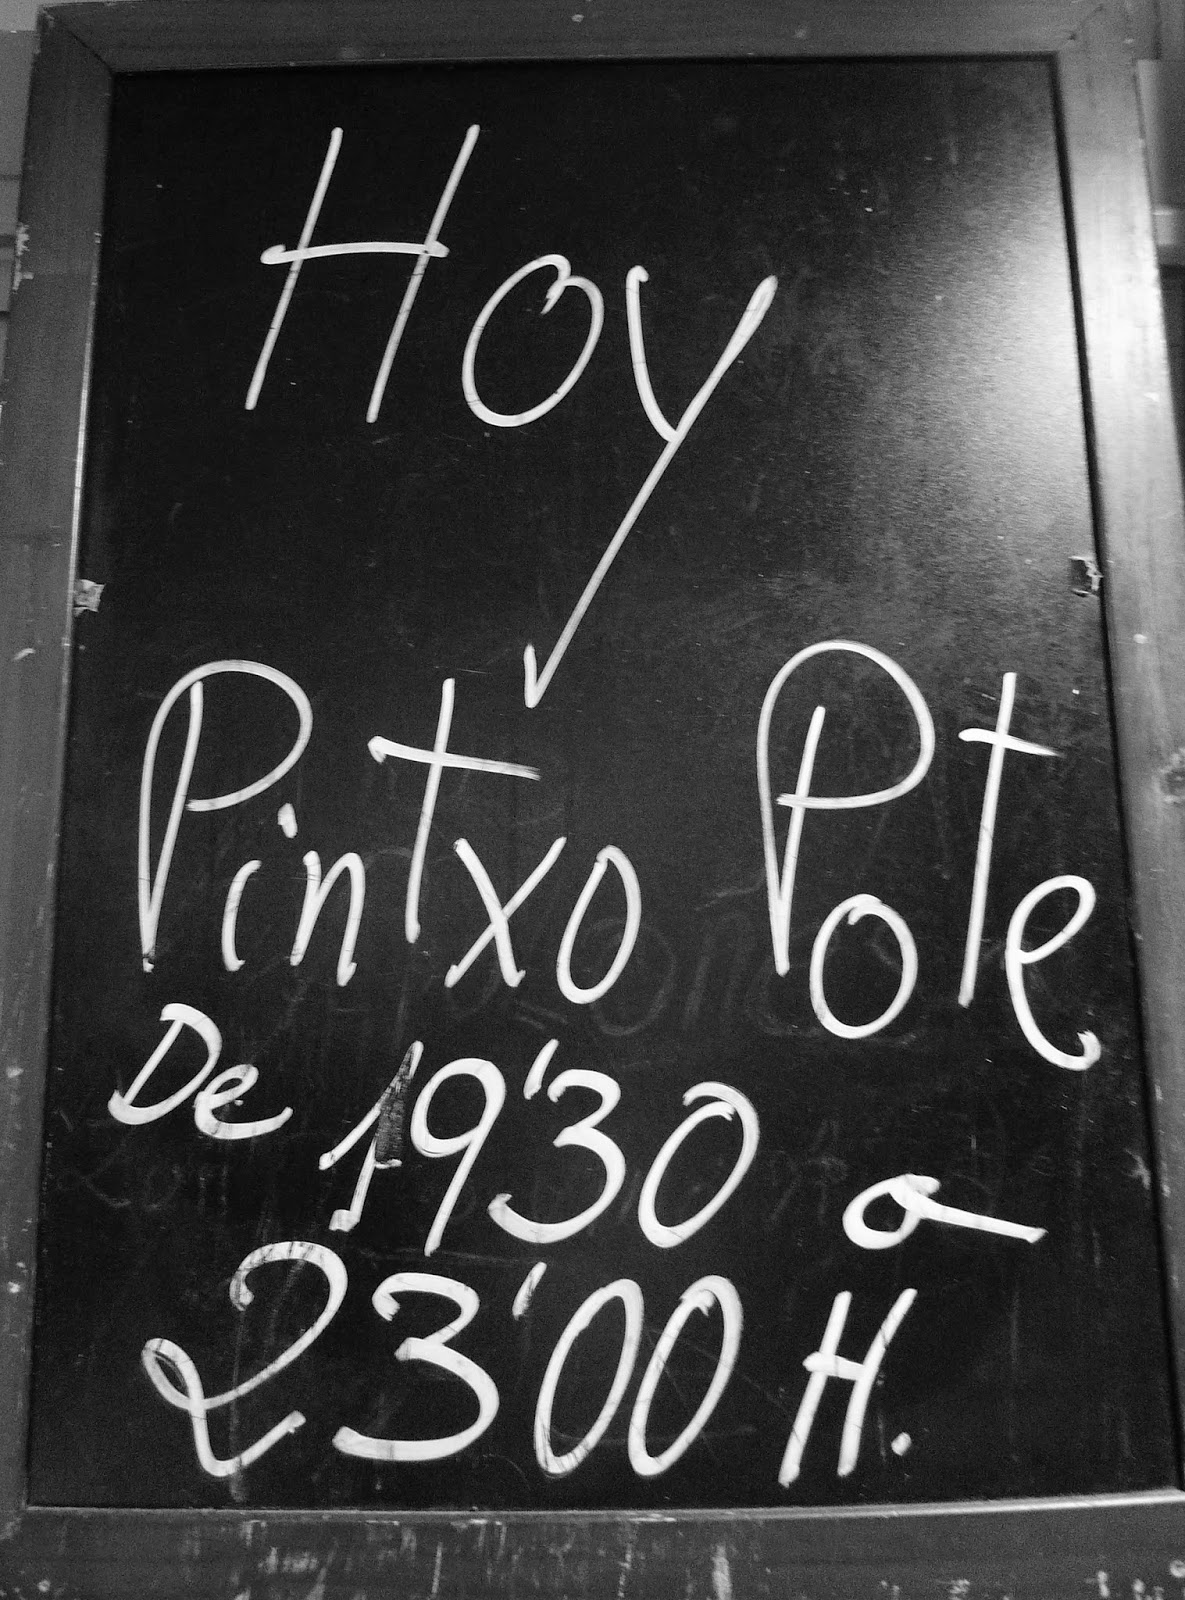 Hoy
Pintxo Pote
De 19'30 a
23'00 H.